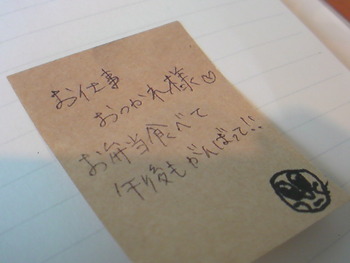 お仕事
おつかれ様♡
お弁当食べて
午後もがんばって!!